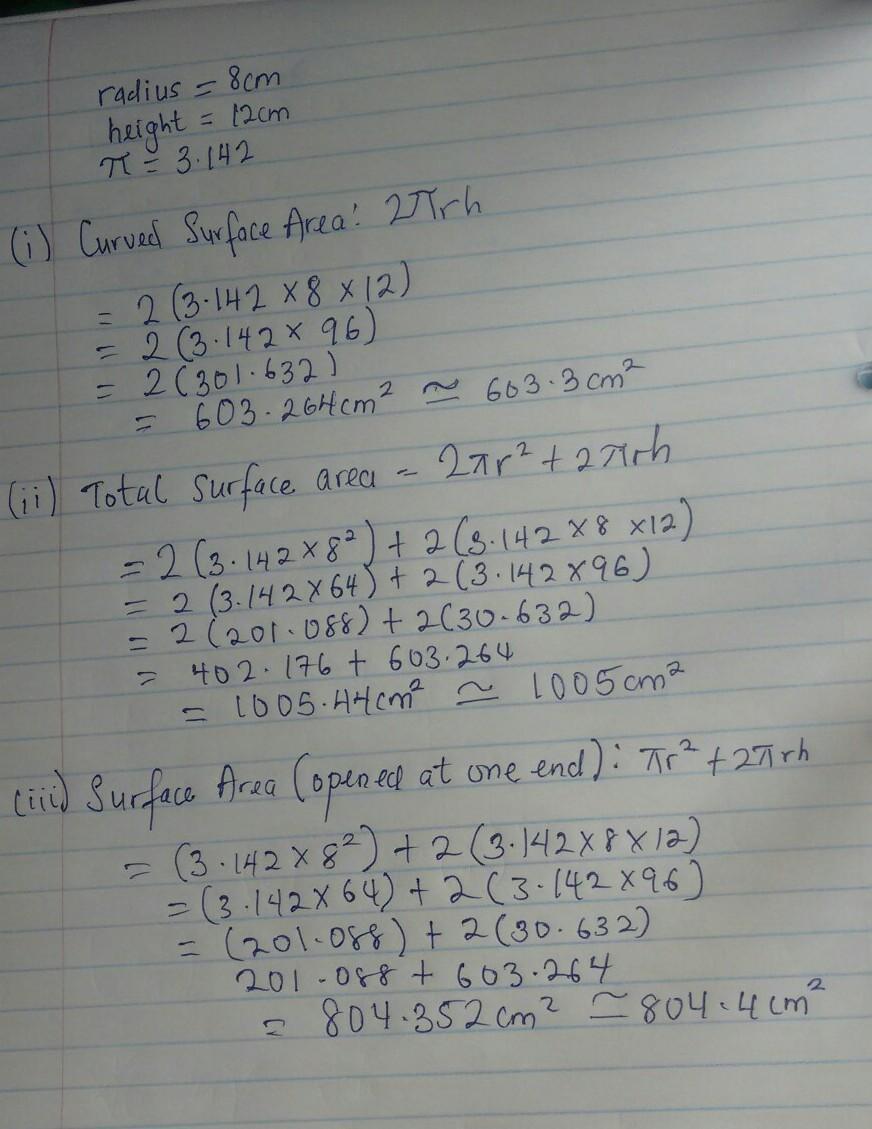 radius = 8cm
height = 12cm
π = 3.142
(i) Curved Surface Area: 2πrh
= 2 (3.142 × 8 × 12)
= 2 (3.142 × 96)
= 2 (301.632)
= 603.264cm² ≃ 603.3cm²
(ii) Total Surface area = 2πr² + 2πrh
= 2 (3.142 × 8²) + 2 (3.142 × 8 × 12)
= 2 (3.142 × 64) + 2 (3.142 × 96)
= 2 (201.088) + 2(30.632)
= 402.176 + 603.264
= 1005.44cm² ≃ 1005cm²
(iii) Surface Area (opened at one end): πr² + 2πrh
= (3.142 × 8²) + 2 (3.142 × 8 × 12)
= (3.142 × 64) + 2 (3.142 × 96)
= (201.088) + 2 (30.632)
201.088 + 603.264
= 804.352cm² ≃ 804.4cm²